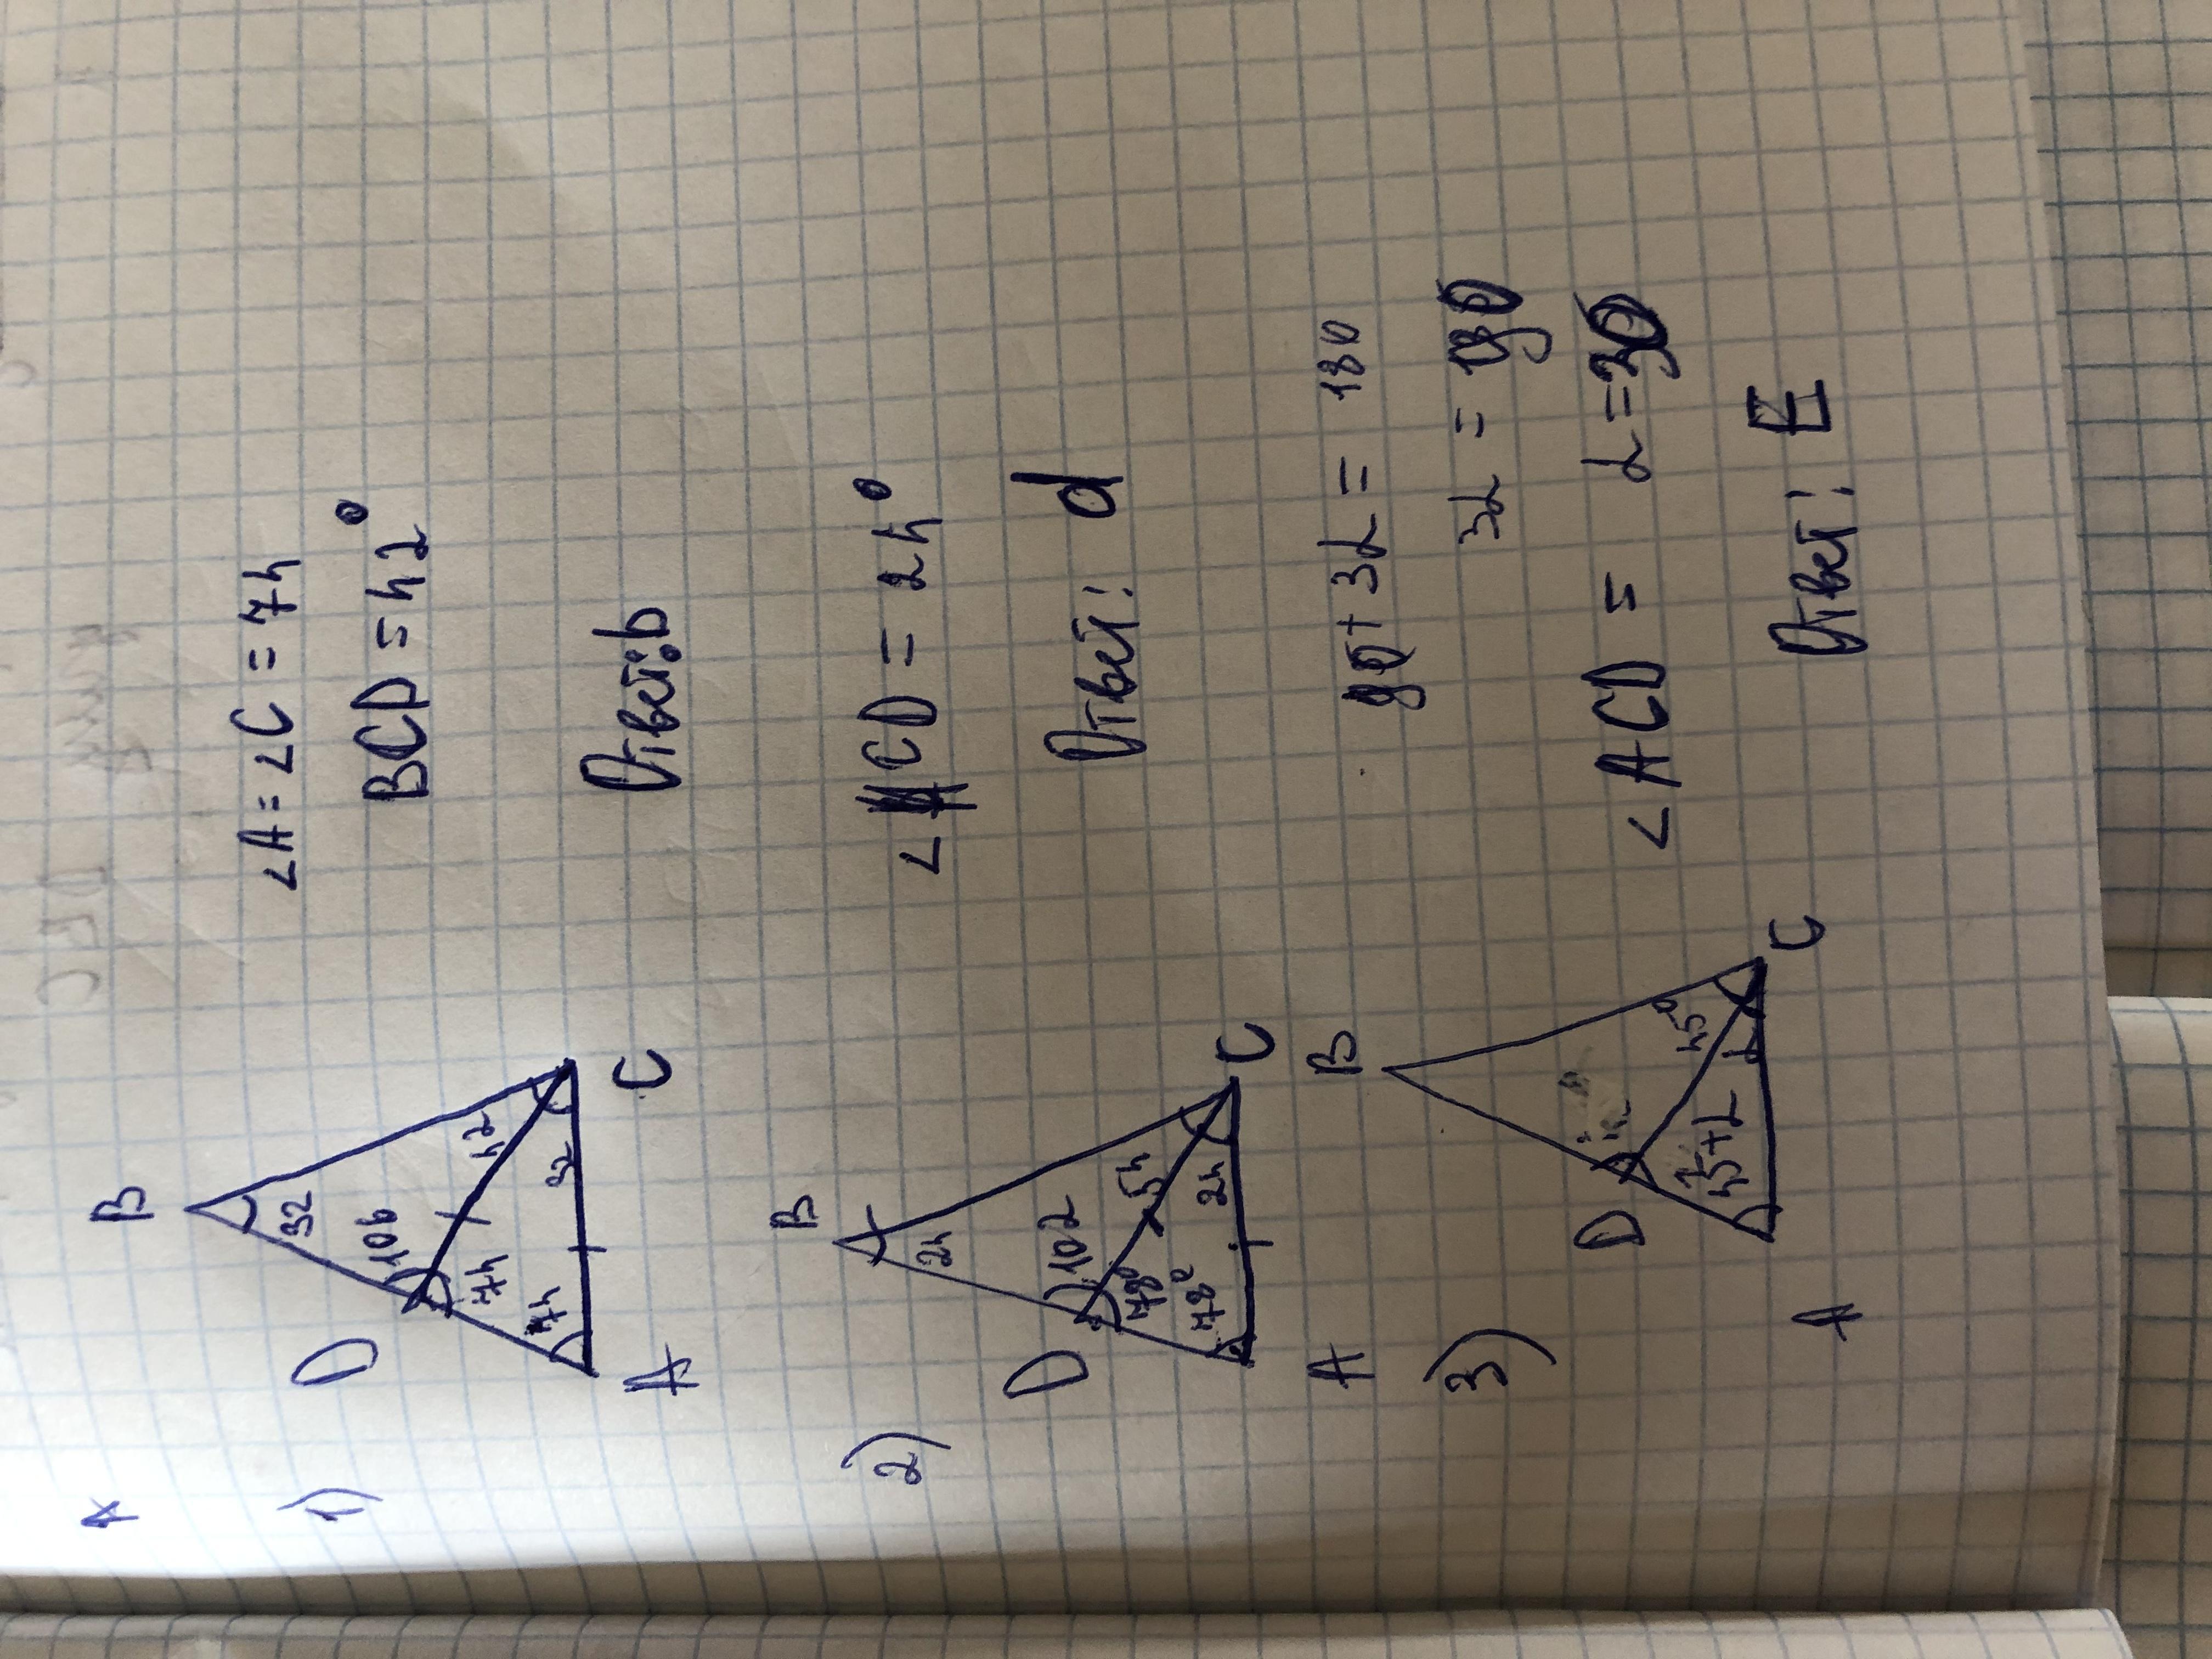 A
1)
B
32
106
42
D
74
74
32
A
C
∠A=∠C=74
BCD=42°
Ответ:b
2)
B
24
102
54
D
78°
78°
24
A
C
CD=24°
Ответ: d
3)
B
45°
D
45+α
α
A
C
90+3α=180
3α=
∠ACD =
α=30
Ответ: E